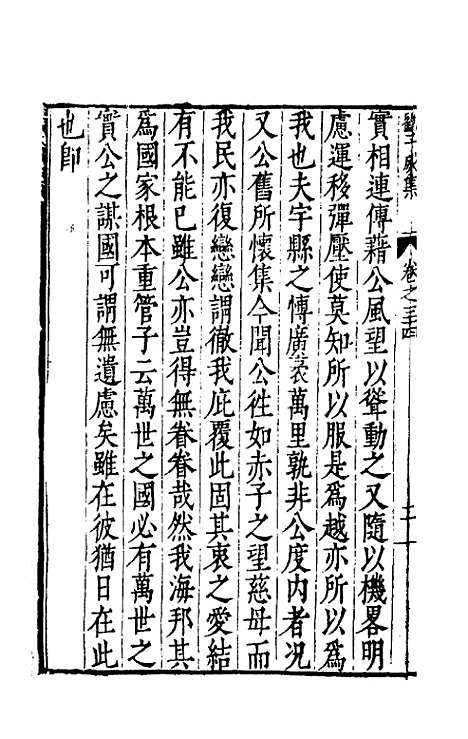 實相連傳藉公風望以聳動之又隨以機畧明
慮運移彈壓使莫知所以服是爲越亦所以爲
我也夫宇縣之慱廣袤萬里孰非公度内者况
又公舊所懷集今聞公徃如赤子之望慈母而
我民亦復戀戀謂徹我庇覆此固其衷之愛結
有不能已雖公亦豈得無眷眷哉然我海邦其
爲國家根本重管子云萬世之國必有萬世之
實公之謀國可謂無遺慮矣雖在彼猶日在此
也卽
卷之十四